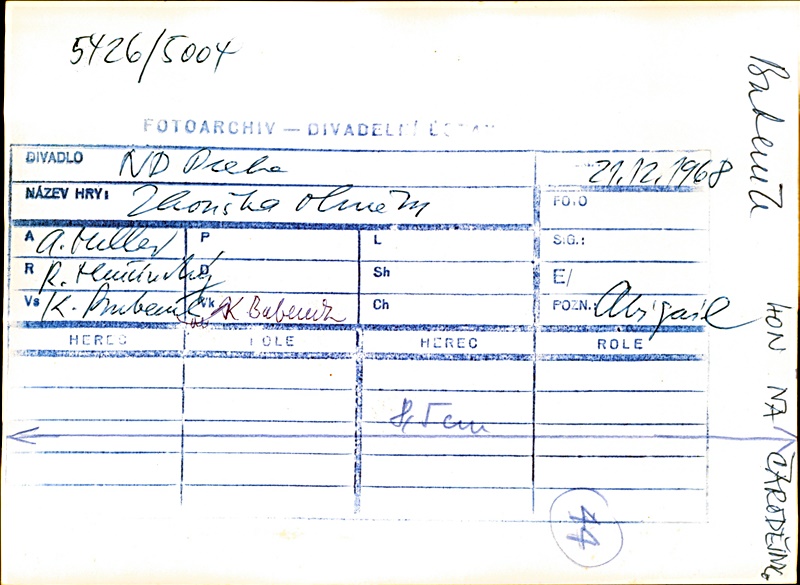 5426/5004
FOTOARCHIV — DIVADELNÍ ÚSTAV
DIVADLO ND Praha
21.12.1968
NÁZEV HRY: Zkouška ohněm
FOTO
A A. Miller P L SIG.:
R D Sh E/
Vs K. Bubeník Vk K Bubeník Ch POZN.: Abigail
HEREC ROLE HEREC ROLE
8,5 cm
44
Bubeník HON NA ČARODĚJN.